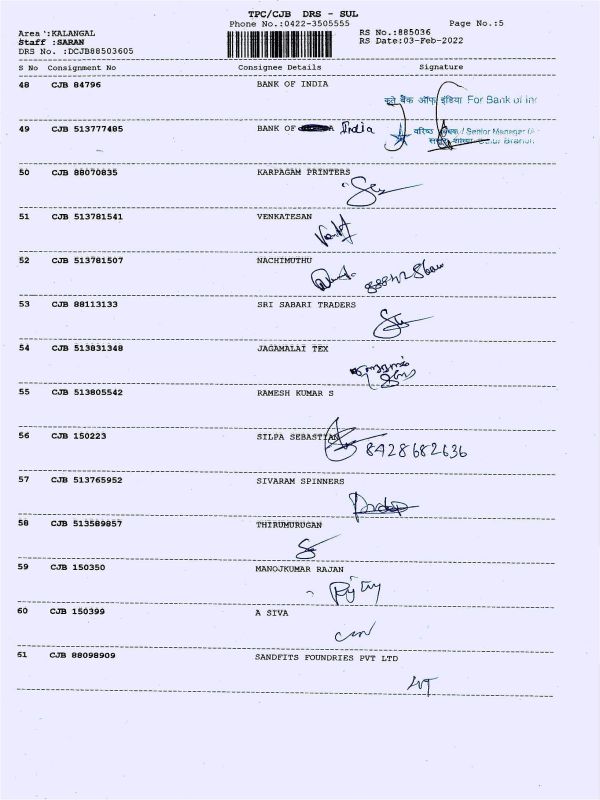 TPC/CJB DRS - SUL
Phone No.:0422-3505555
Page No.:5
Area :KALANGAL
RS No.:885036
Staff :SARAN
RS Date:03-Feb-2022
DRS No. :DCJB88503605
S No Consignment No Consignee Details Signature
48 CJB 84796 BANK OF INDIA
कृते बैंक ऑफ इंडिया For Bank of
49 CJB 513777485 BANK OF India
वरिष्ठ / Senior Manager
50 CJB 88070835 KARPAGAM PRINTERS
51 CJB 513781541 VENKATESAN
52 CJB 513781507 NACHIMUTHU
53 CJB 88113133 SRI SABARI TRADERS
54 CJB 513831348 JAGAMALAI TEX
55 CJB 513805542 RAMESH KUMAR S
56 CJB 150223 SILPA SEBASTIAN
8428682636
57 CJB 513765952 SIVARAM SPINNERS
58 CJB 513589857 THIRUMURUGAN
59 CJB 150350 MANOJKUMAR RAJAN
60 CJB 150399 A SIVA
61 CJB 88098909 SANDFITS FOUNDRIES PVT LTD